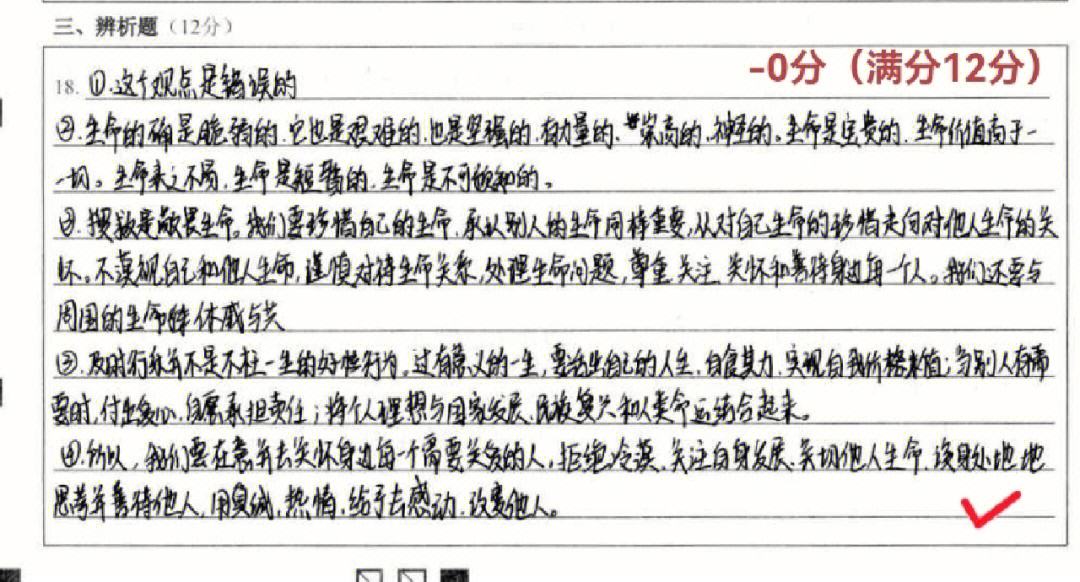 三、辨析题（12分）
-0分（满分12分）
18. ①.这个观点是错误的
②.生命的确是脆弱的.它也是艰难的.也是坚强的.有力量的、崇高的、神圣的。生命是宝贵的.生命价值高于一
切。生命来之不易.生命是短暂的.生命是不可的。
③.是敬畏生命。我们要珍惜自己的生命.承认别人的生命同样重要,从对自己生命的珍惜走向对他人生命的关
怀。不漠视自己和他人生命,谨慎对待生命关系,处理生命问题,尊重.关注.关怀和善待身边每一个人。我们还要与
周围的生命休戚与共
③.及时行乐并不是不枉一生的好行为。过有意义的一生,要活出自己的人生.自食其力.实现自我价值;当别人有需
要时,付出爱心.自愿承担责任;将个人理想与国家发展.民族复兴和人类命运结合起来。
④.所以,我们要在意并去关怀身边每一个需要关爱的人,拒绝冷漠.关注自身发展.关切他人生命.设身处地地
思考并善待他人.用真诚.热情.给予去感动.改变他人。